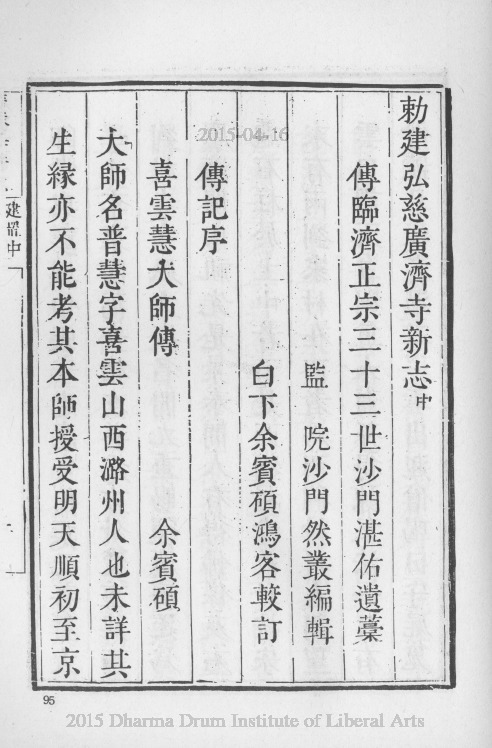 勅建弘慈廣濟寺新志中
傳臨濟正宗三十三世沙門湛佑遺藁
監院沙門然叢編輯
白下余賓碩鴻客較訂
傳記序
喜雲慧大師傳 余賓碩
大師名普慧字喜雲山西潞州人也未詳其
生緣亦不能考其本師授受明天順初至京
2015-04-16
95
2015 Dharma Drum Institute of Liberal Arts